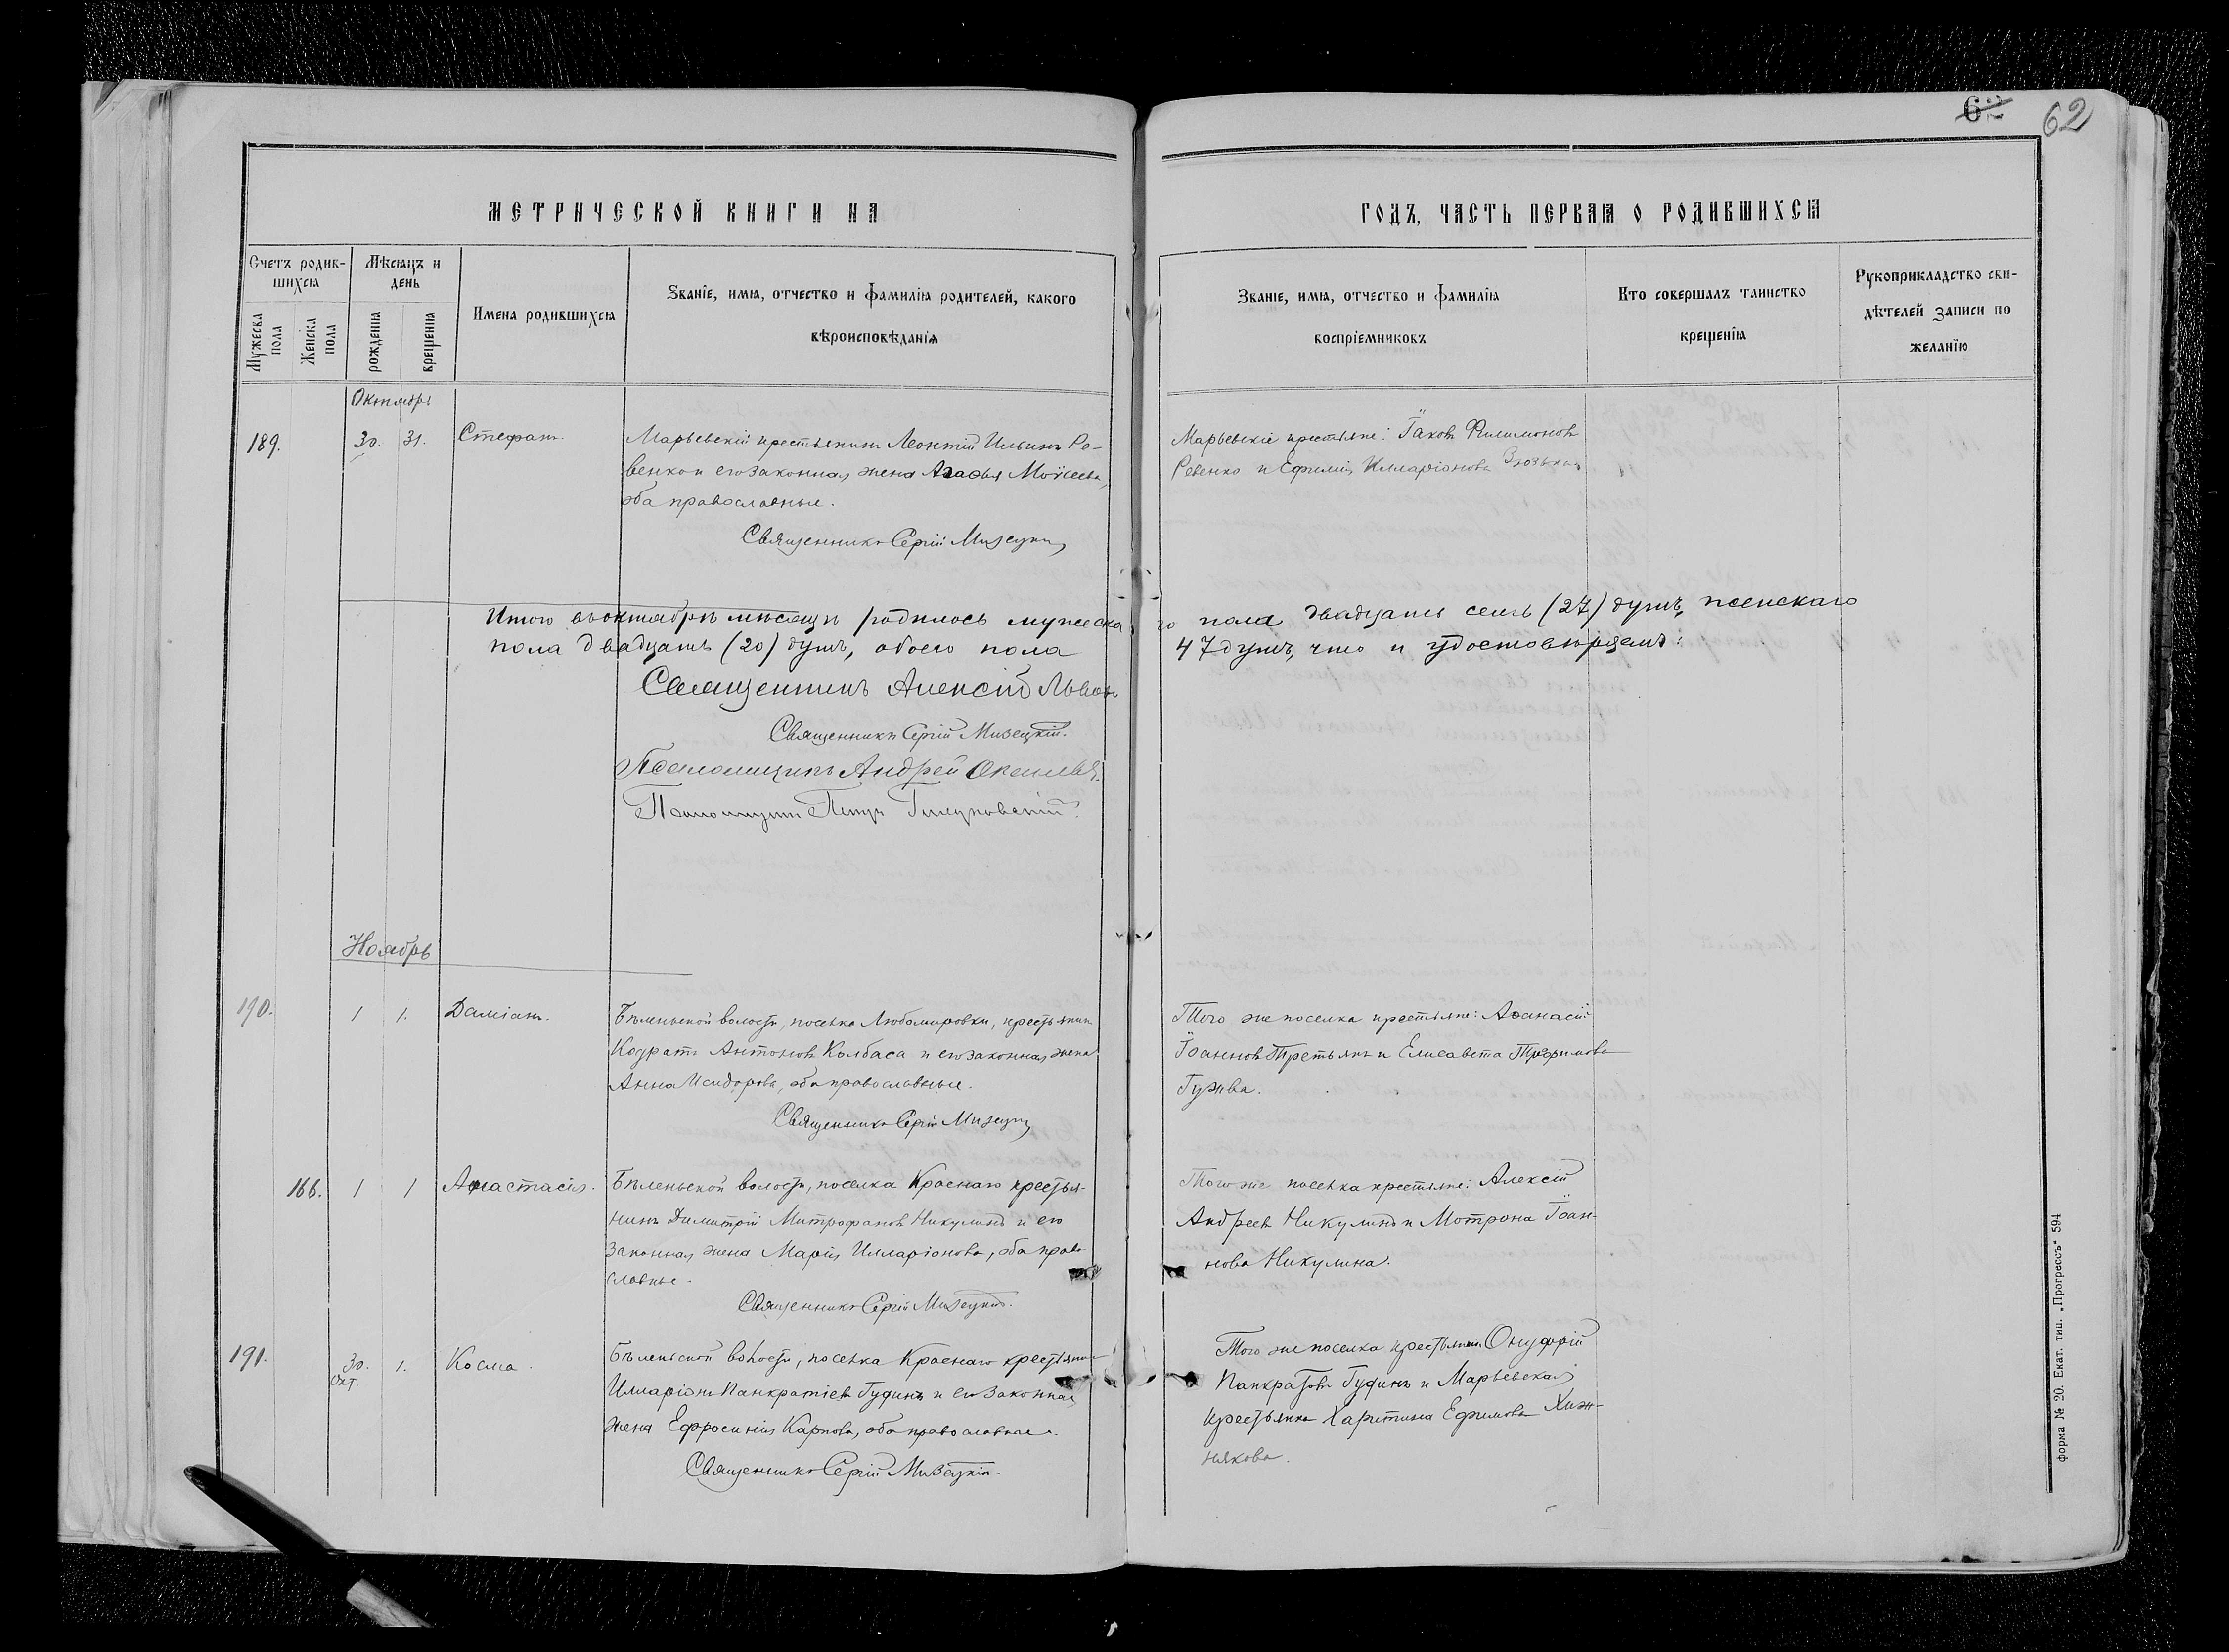 62 62
МЕТРИЧЕСКОЙ КНИГИ НА
ГОДЪ, ЧАСТЬ ПЕРВАЯ О РОДИВШИХСЯ
Счетъ родив-
шихся
Мужеска
пола
Женска
пола
Мѣсяцъ и
день
рожденія
крещенія
Имена родившихся
Званіе, имя, отчество и фамилія родителей, какого
вѣроисповѣданія
Званіе, имя, отчество и фамилія
воспріемниковъ
Кто совершалъ таинство
крещенія
Рукоприкладство сви-
дѣтелей записи по
желанію
Октябрь
189. 30. 31. Стефанъ.
Марьевскій крестьянинъ Леонтій Ильинъ Ре-
венко и его законная жена Агафья Моисеева,
оба православные.
Священникъ Сергій Мизецкій
Марьевскіе крестьяне: Іаковъ Филимоновъ
Ревенко и Ефимія Илларіонова
Итого въ октябрѣ мѣсяцѣ родилось мужеска го пола двадцать семь (27) душъ, женскаго
пола двадцать (20) душъ, обоего пола 47 душъ, что и удостовѣряемъ:
Священникъ Алексій Львовъ
Священникъ Сергій Мизецкій.
Псаломщикъ Андрей
Псаломщикъ Петръ
Ноябрь
190. 1 1. Даміанъ.
Бѣленьской волости, поселка Любомировки, крестьянинъ
Кодратъ Антоновъ Колбаса и его законная жена
Анна Исидорова, оба православные.
Священникъ Сергій Мизецкій
Того же поселка крестьяне: Аѳанасій
Іоанновъ Третьякъ и Елисавета Трофимова
Гужва.
166. 1 1 Анастасія.
Бѣленьской волости, поселка Краснаго крестья-
нинъ Димитрій Митрофановъ Никулинъ и его
законная жена Марія Илларіонова, оба право
славные.
Священникъ Сергій Мизецкій.
Того же поселка крестьяне: Алексій
Андреевъ Никулинъ и Мотрона Іоан-
нова Никулина.
191. 30. окт. 1. Косма.
Бѣленьской волости, поселка Краснаго крестьянинъ
Илларіонъ Панкратіевъ Гудинъ и его законная
жена Ефросинія Карпова, оба православные.
Священникъ Сергій Мизецкій.
Того же поселка крестьянинъ Онуфрій
Панкратовъ Гудинъ и Марьевская
крестьянка Харитина Ефимова Хиж-
някова.
форма № 20. Екат. тип. „Прогрессъ" 594